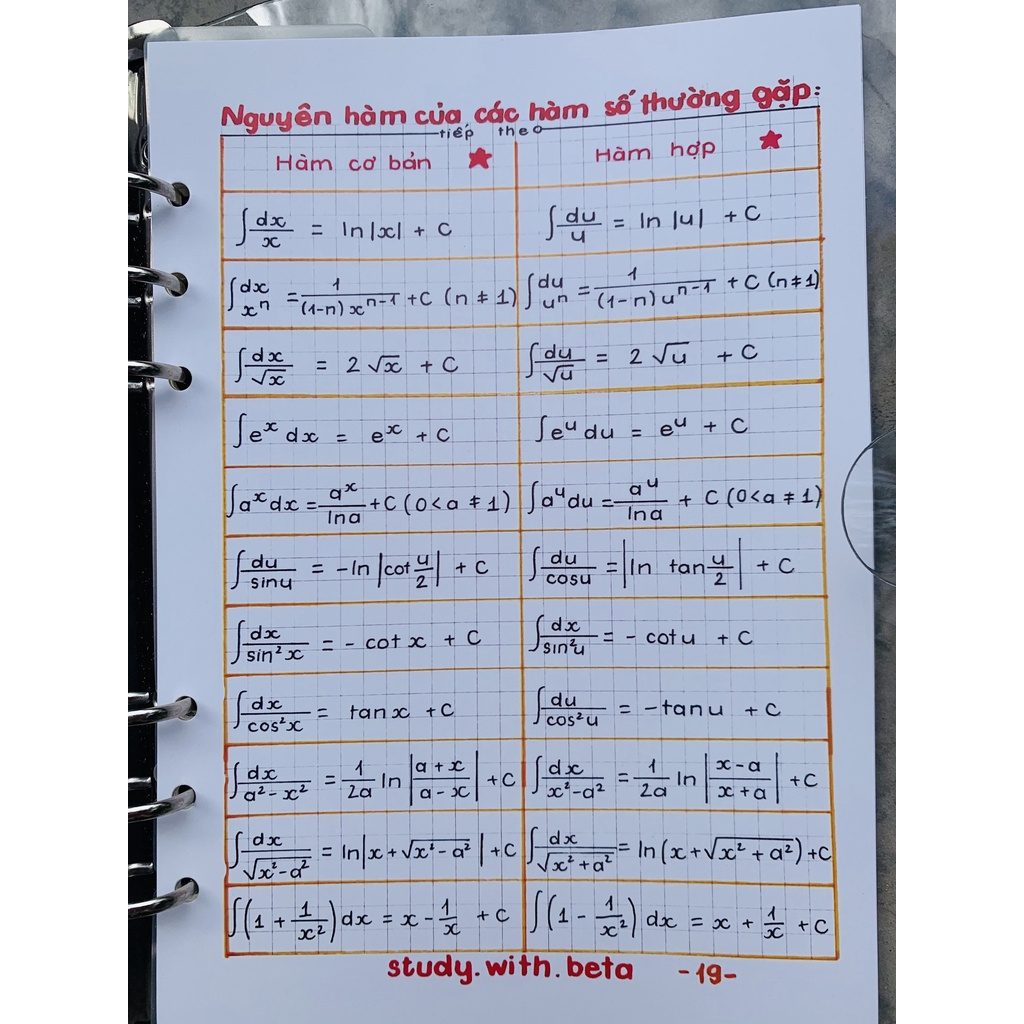 Nguyên hàm của các hàm số thường gặp:
tiếp theo
Hàm cơ bản ★ Hàm hợp ★
∫dx/x = ln|x| + C ∫du/u = ln|u| + C
∫dx/xⁿ = 1/((1-n)xⁿ⁻¹) + C (n ≠ 1) ∫du/uⁿ = 1/((1-n)uⁿ⁻¹) + C (n ≠ 1)
∫dx/√x = 2√x + C ∫du/√u = 2√u + C
∫eˣ dx = eˣ + C ∫eᵘ du = eᵘ + C
∫aˣdx = aˣ/lna + C (0<a ≠ 1) ∫aᵘdu = aᵘ/lna + C (0<a ≠ 1)
∫du/sinu = -ln|cot u/2| + C ∫du/cosu = |ln tan u/2| + C
∫dx/sin²x = - cot x + C ∫dx/sin²u = - cotu + C
∫dx/cos²x = tanx + C ∫du/cos²u = -tanu + C
∫dx/(a²-x²) = 1/2a ln|(a+x)/(a-x)| + C ∫dx/(x²-a²) = 1/2a ln|(x-a)/(x+a)| + C
∫dx/√(x²-a²) = ln|x+√(x²-a²)| + C ∫dx/√(x²+a²) = ln(x+√(x²+a²)) + C
∫(1 + 1/x²)dx = x - 1/x + C ∫(1 - 1/x²) dx = x + 1/x + C
study.with.beta -19-